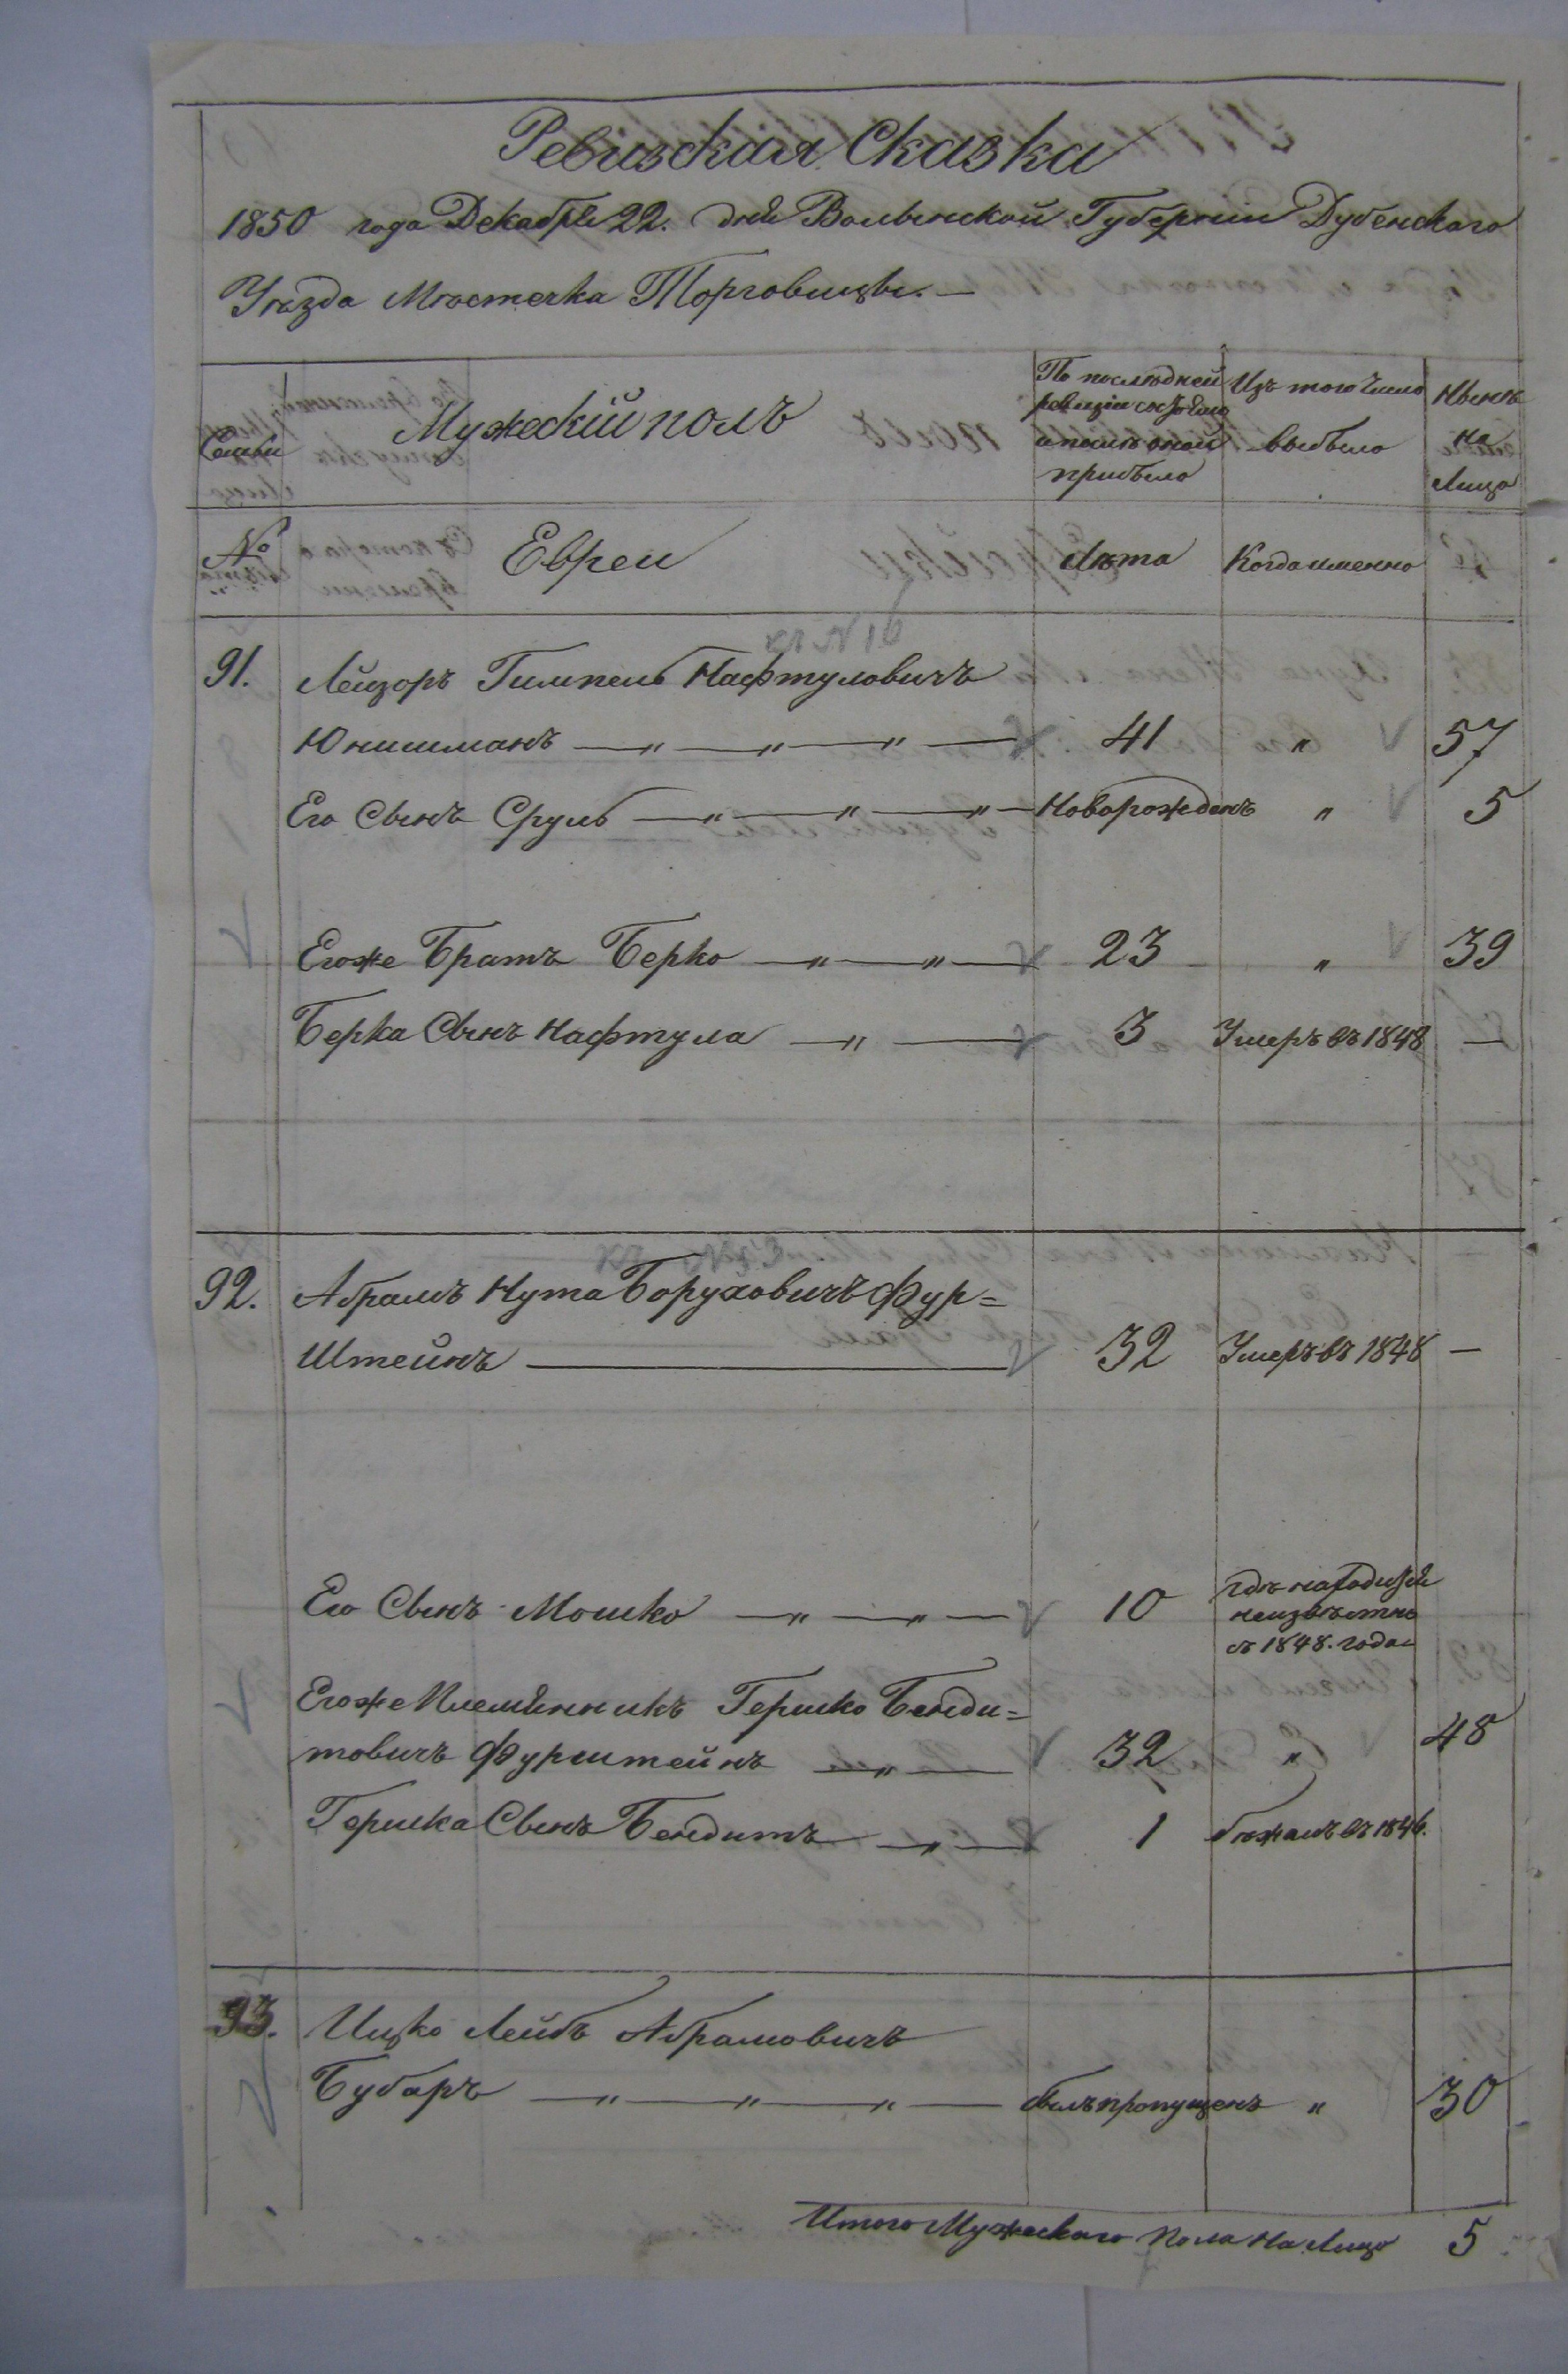 Ревизская Сказка
1850 года Декабря 22. дня Волынской Губернiи Дубенскаго
Уѣзда Мѣстечка Торговицы. —
Семьи
Мужескiй полъ
По последней ревизiи состояло и послѣ оной прибыло
Изъ того числа выбыло
Нынѣ на Лицо
№
Евреи
Лѣта
Когда именно
91. Лейзоръ Гимпель Нафтуловичъ
Юнишманъ — „ — „ — „ — 41 „ 57
Его Сынъ Сруль — „ — „ — „ — Новорожденъ „ 5
Егоже Братъ Берко — „ — „ — 23 „ 39
Берка Сынъ Нафтула — „ — 3 Умеръ въ 1848 —
92. Абрамъ Нута Боруховичъ Фур=
Штейнъ — 32 Умеръ въ 1848 —
Его Сынъ Мошко — „ — „ — 10 гдѣ находится
неизвѣстно
съ 1848. года
Егоже Племянникъ Гершко Бенди=
товичъ Фурштейнъ — „ — 32 „ 48
Гершка Сынъ Бендитъ — „ — 1 бѣжалъ въ 1846.
93. Ицко Лейбъ Абрамовичъ
Бубаръ — „ — „ — „ — былъ пропущенъ „ 30
Итого Мужескаго Пола На Лицо 5